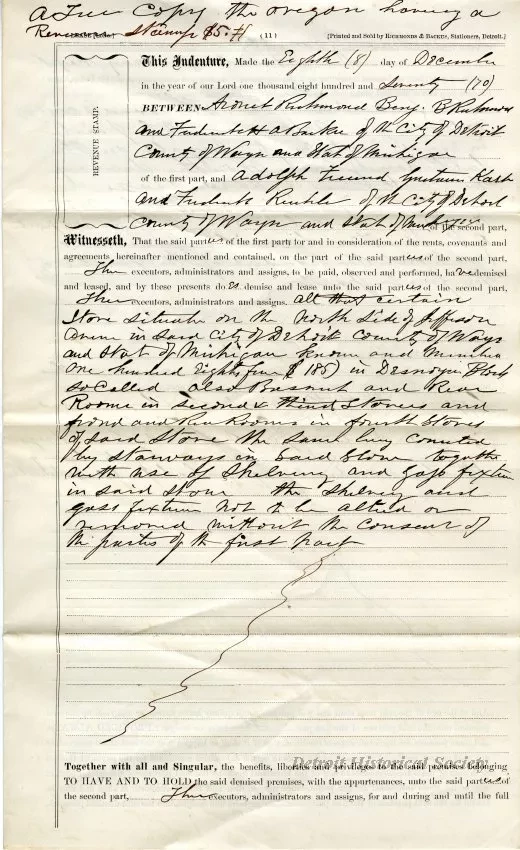 A True Copy the oregon having a
Revenue Stamp $5.
(11)
[Printed and Sold by RICHMONDS & BACKUS, Stationers, Detroit.]
REVENUE STAMP.
This Indenture, Made the Eighth (8) day of December
in the year of our Lord one thousand eight hundred and Seventy (70)
BETWEEN Richmond Benj. B Richmond
and Backus of the City of Detroit
County of Wayn and Stat of Michigan
of the first part, and Adolph Freund Gustavus
and of the City of Detroit
County of Wayn and Stat of of the second part,
Witnesseth, That the said parties of the first part, for and in consideration of the rents, covenants and
agreements hereinafter mentioned and contained, on the part of the said parties of the second part,
Their executors, administrators and assigns, to be paid, observed and performed, have demised
and leased, and by these presents do demise and lease unto the said parties of the second part,
Their executors, administrators and assigns. all that certain
Store situate on the North Side of Jefferson
Avenue in said City of Detroit County of Wayn
and Stat of Michigan Known and
One hundred Eighty five (185) in Block
so called also Basement and Rear
Rooms in second & third Stores and
front and Rear Rooms in fourth Stores
of said Store the same being connected
by stairways in said Store together
with use of Shelving and gass fixtures
in said Store the Shelving and
gass fixtures not to be altered or
removed without the consent of
the parties of the first part
Together with all and Singular, the benefits, liberties and privileges to the said premises belonging
TO HAVE AND TO HOLD the said demised premises, with the appurtenances, unto the said parties of
the second part, Their executors, administrators and assigns, for and during and until the full
Detroit Historical Society